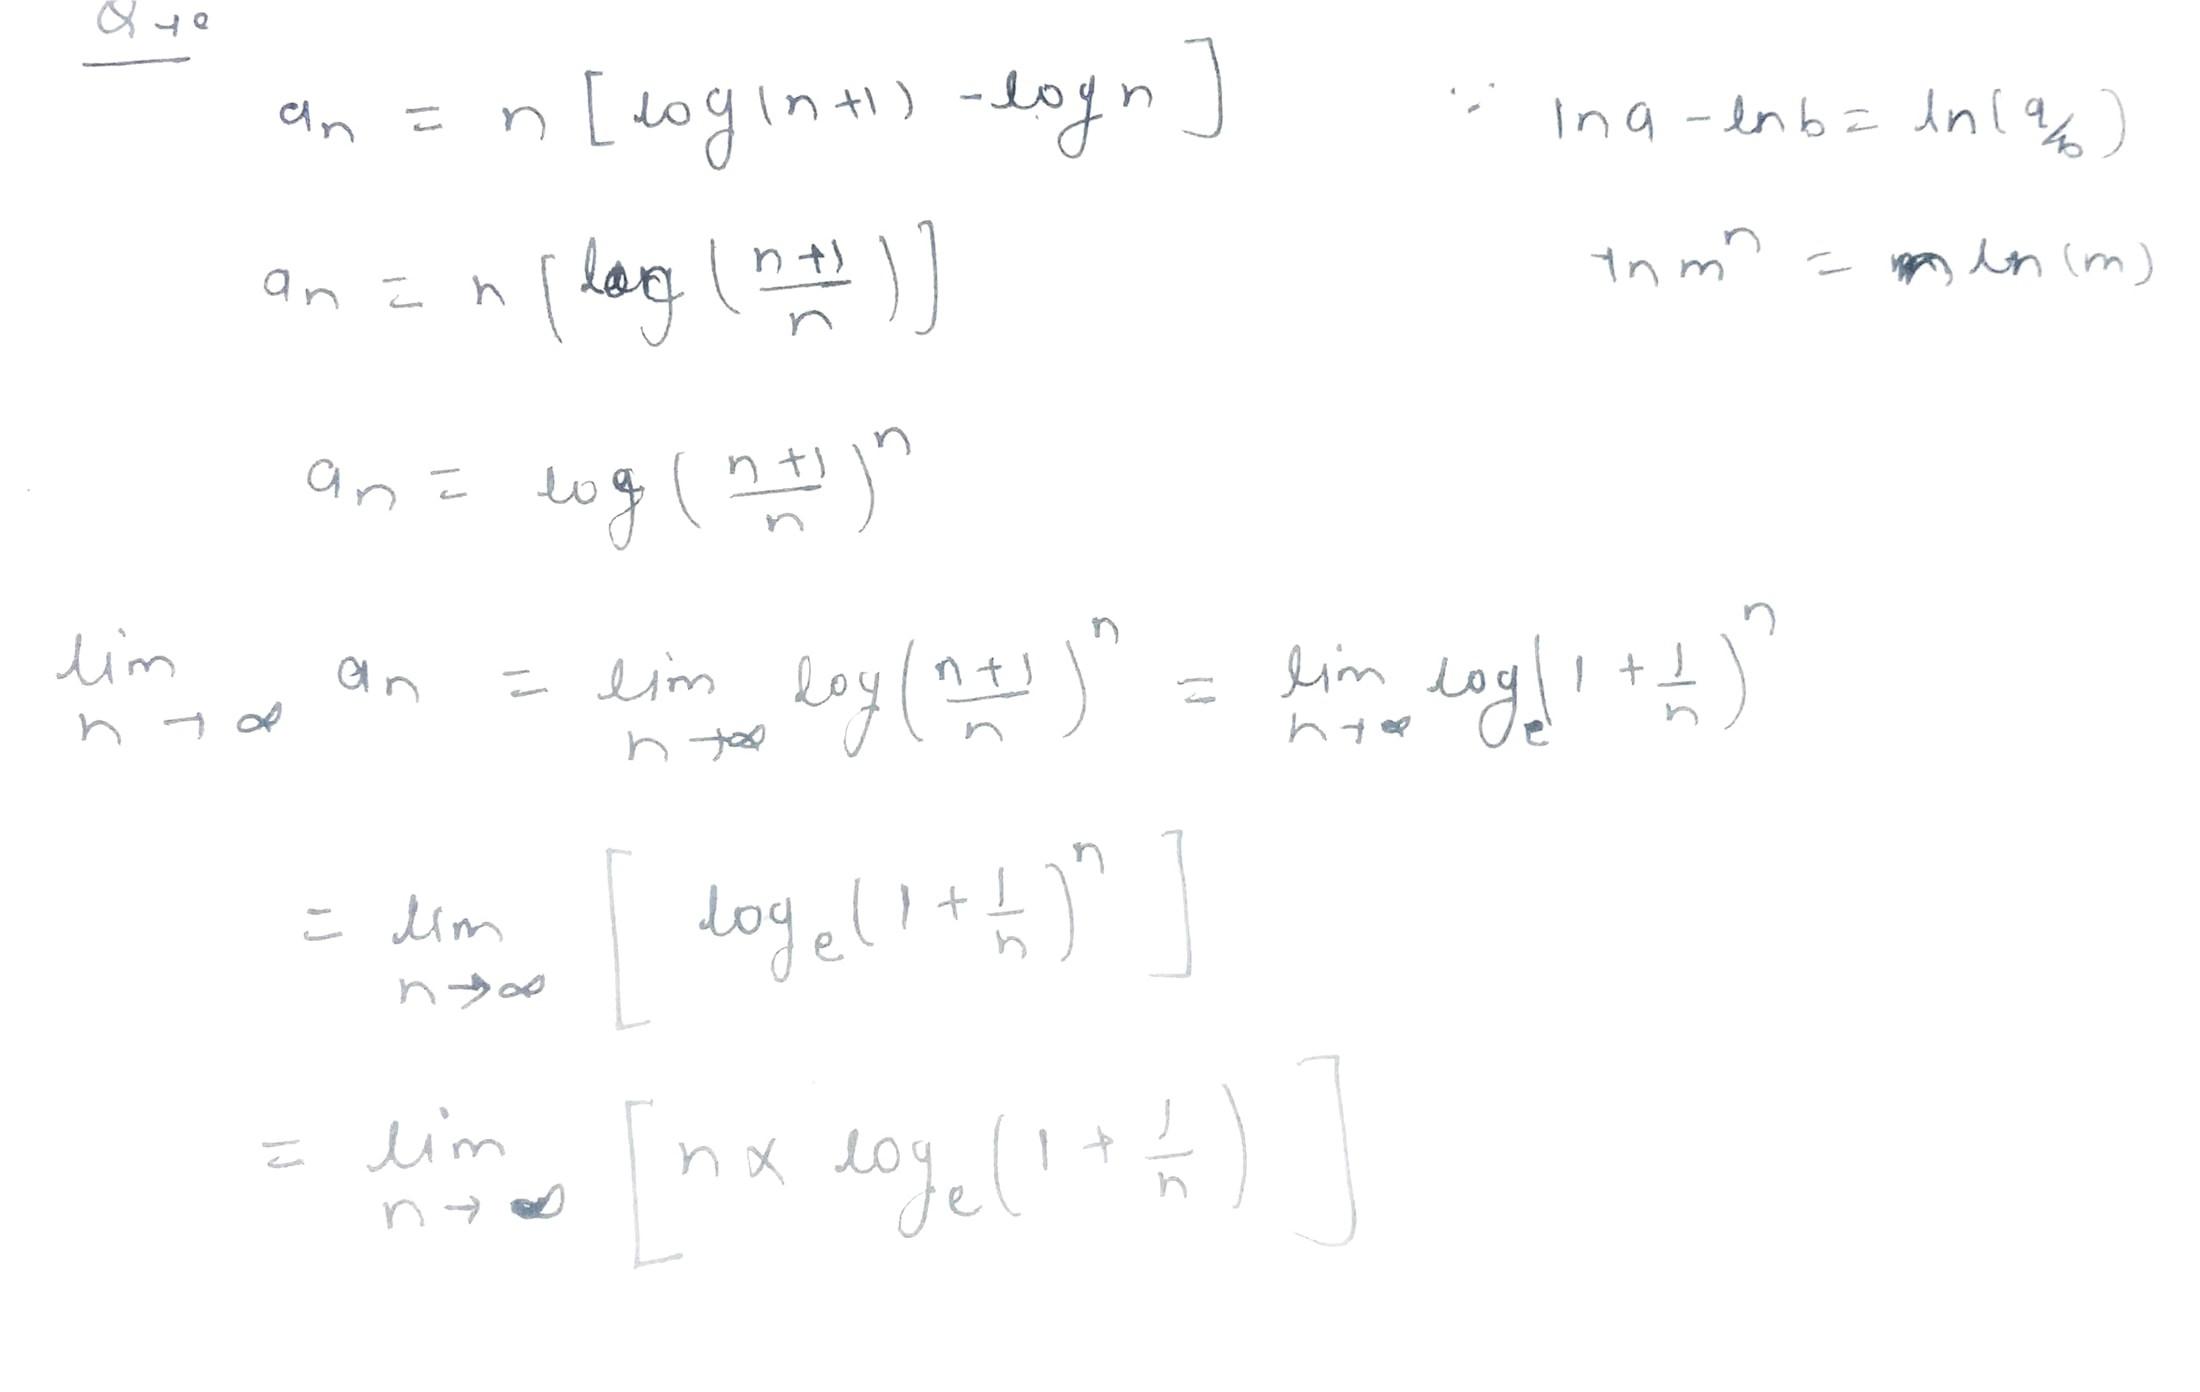 an = n [log(n+1) - log n] ∵ ln a - ln b = ln(a/b)
an = n [log((n+1)/n)] ln m^n = n ln(m)
an = log((n+1)/n)^n
lim n→∞ an = lim n→∞ log((n+1)/n)^n = lim n→∞ log_e(1 + 1/n)^n
= lim n→∞ [log_e(1 + 1/n)^n]
= lim n→∞ [n × log_e(1 + 1/n)]